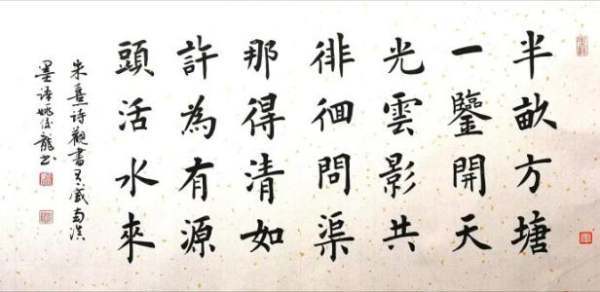 半畝方塘
一鑒開天
光雲影共
徘徊問渠
那得清如
許為有源
頭活水來
朱熹詩觀書有感
墨 姚俊龍書